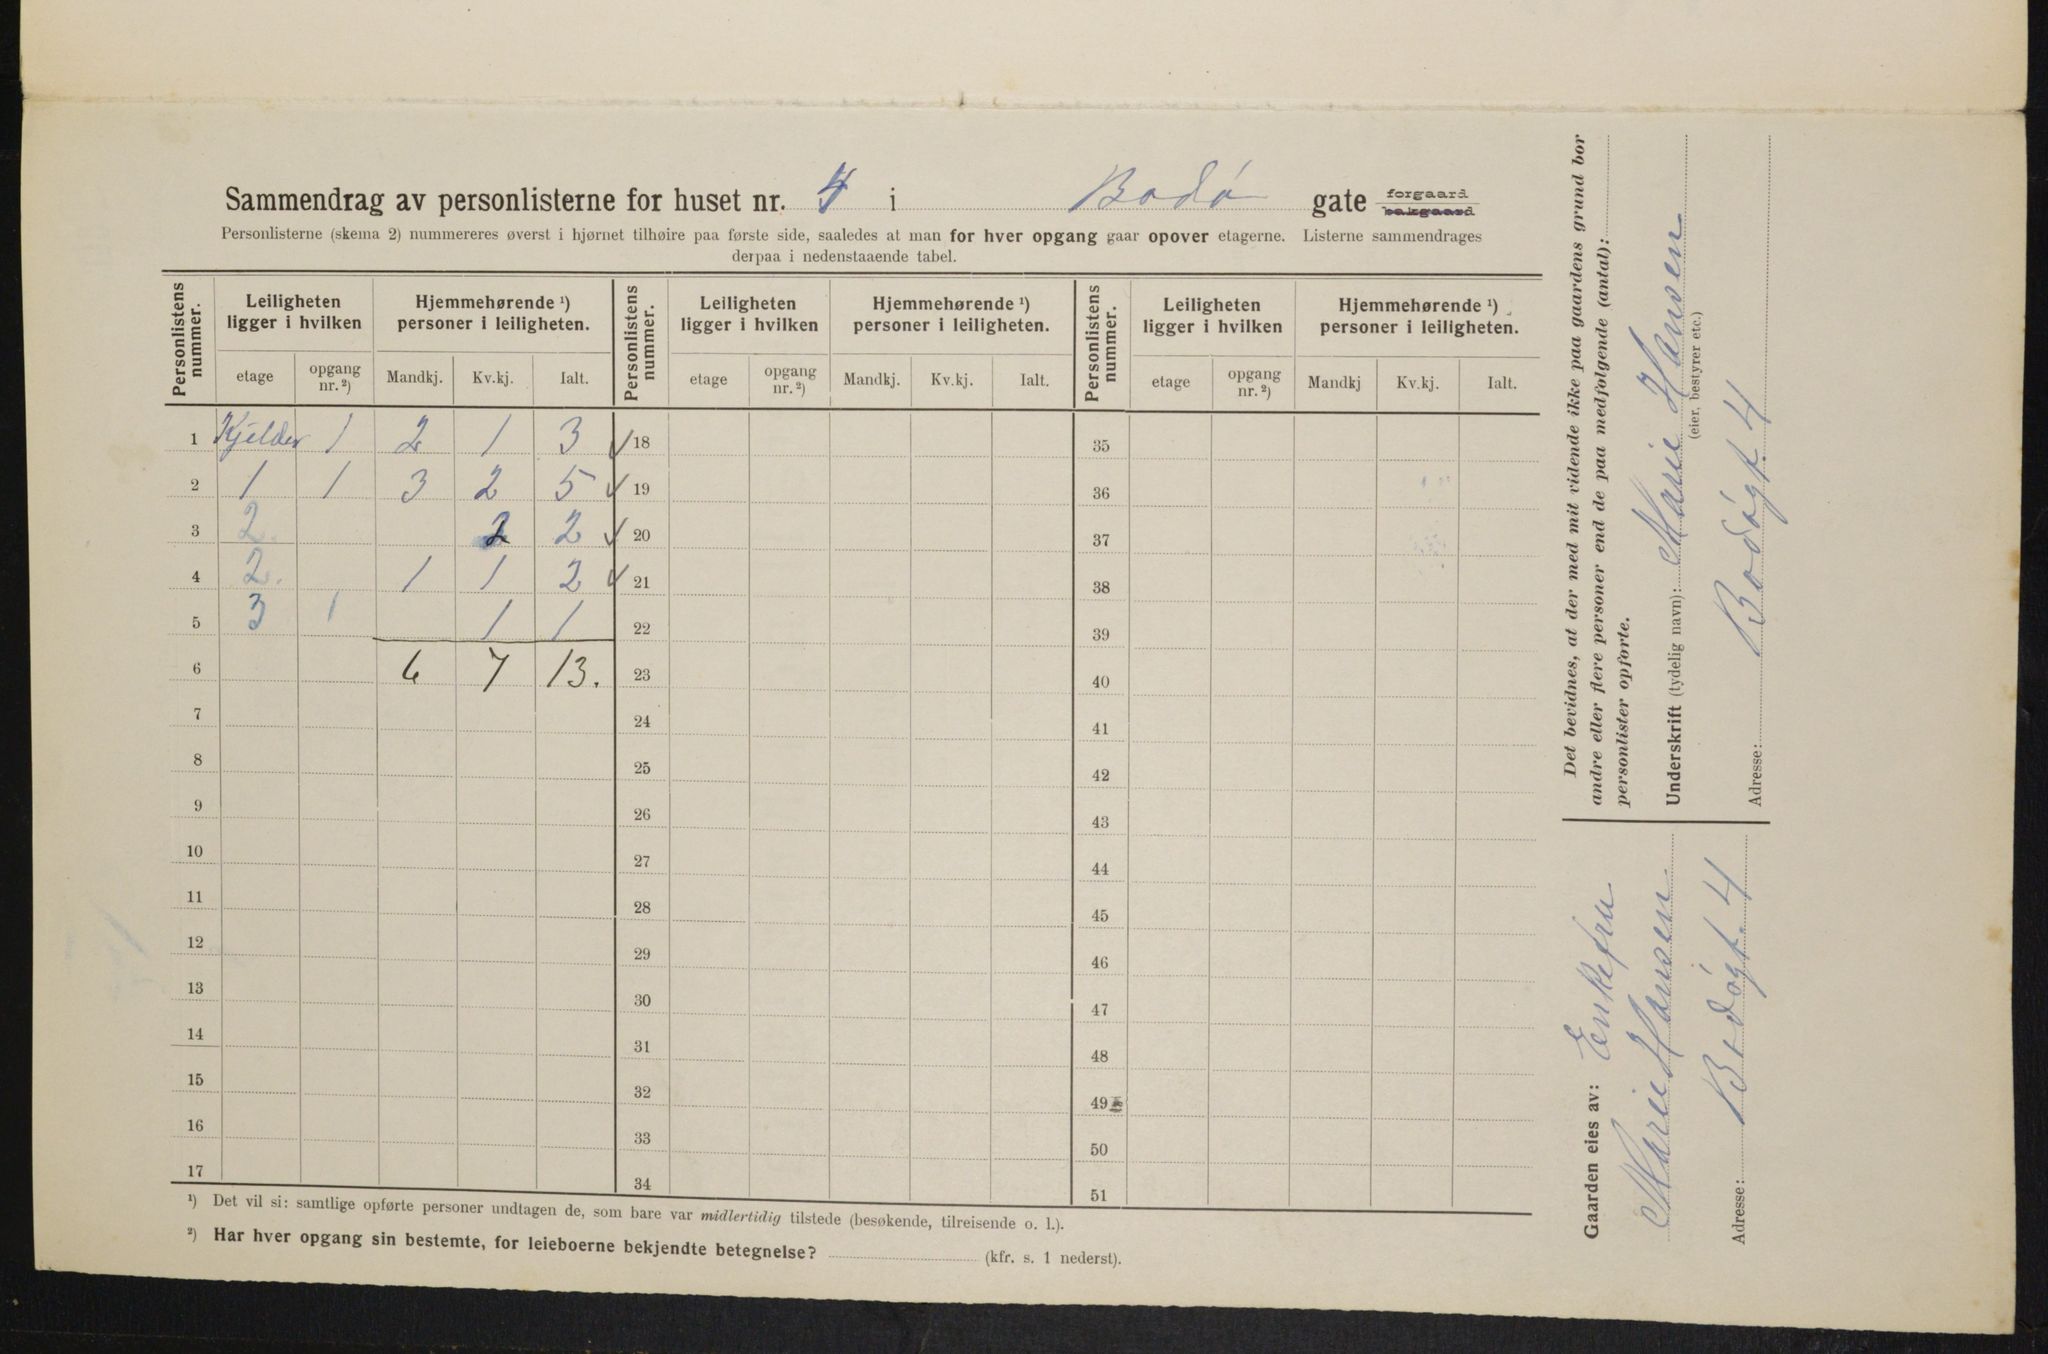 Sammendrag av personlisterne for huset nr. 4 i Bodø gate forgaard
bakgaard
Personlisterne (skema 2) nummereres øverst i hjørnet tilhøire paa første side, saaledes at man for hver opgang gaar opover etagerne. Listerne sammendrages
derpaa i nedenstaaende tabel.
Personlistens nummer. Leiligheten ligger i hvilken Hjemmehørende ¹) personer i leiligheten. Personlistens nummer. Leiligheten ligger i hvilken Hjemmehørende ¹) personer i leiligheten. Personlistens nummer. Leiligheten ligger i hvilken Hjemmehørende ¹) personer i leiligheten.
etage opgang nr. ²) Mandkj. Kv.kj. Ialt. etage opgang nr. ²) Mandkj. Kv.kj. Ialt. etage opgang nr. ²) Mandkj Kv.kj. Ialt.
1 Kjelder 1 2 1 3 ✓ 18 35
2 1 1 3 2 5 ✓ 19 36
3 2. 2 2 ✓ 20 37
4 2. 1 1 2 ✓ 21 38
5 3 1 1 1 22 39
6 6 7 13. 23 40
7 24 41
8 25 42
9 26 43
10 27 44
11 28 45
12 29 46
13 30 47
14 31 48
15 32 49
16 33 50
17 34 51
¹) Det vil si: samtlige opførte personer undtagen de, som bare var midlertidig tilstede (besøkende, tilreisende o. l.).
²) Har hver opgang sin bestemte, for leieboerne bekjendte betegnelse? (kfr. s. 1 nederst).
Det bevidnes, at der med mit vidende ikke paa gaardens grund bor
andre eller flere personer end de paa medfølgende (antal):
personlister opførte.
Underskrift (tydelig navn): Marie Hansen
(eier, bestyrer etc.)
Adresse: Bodøgt. 4
Gaarden eies av: Enkefru
Marie Hansen
Adresse: Bodøgt. 4